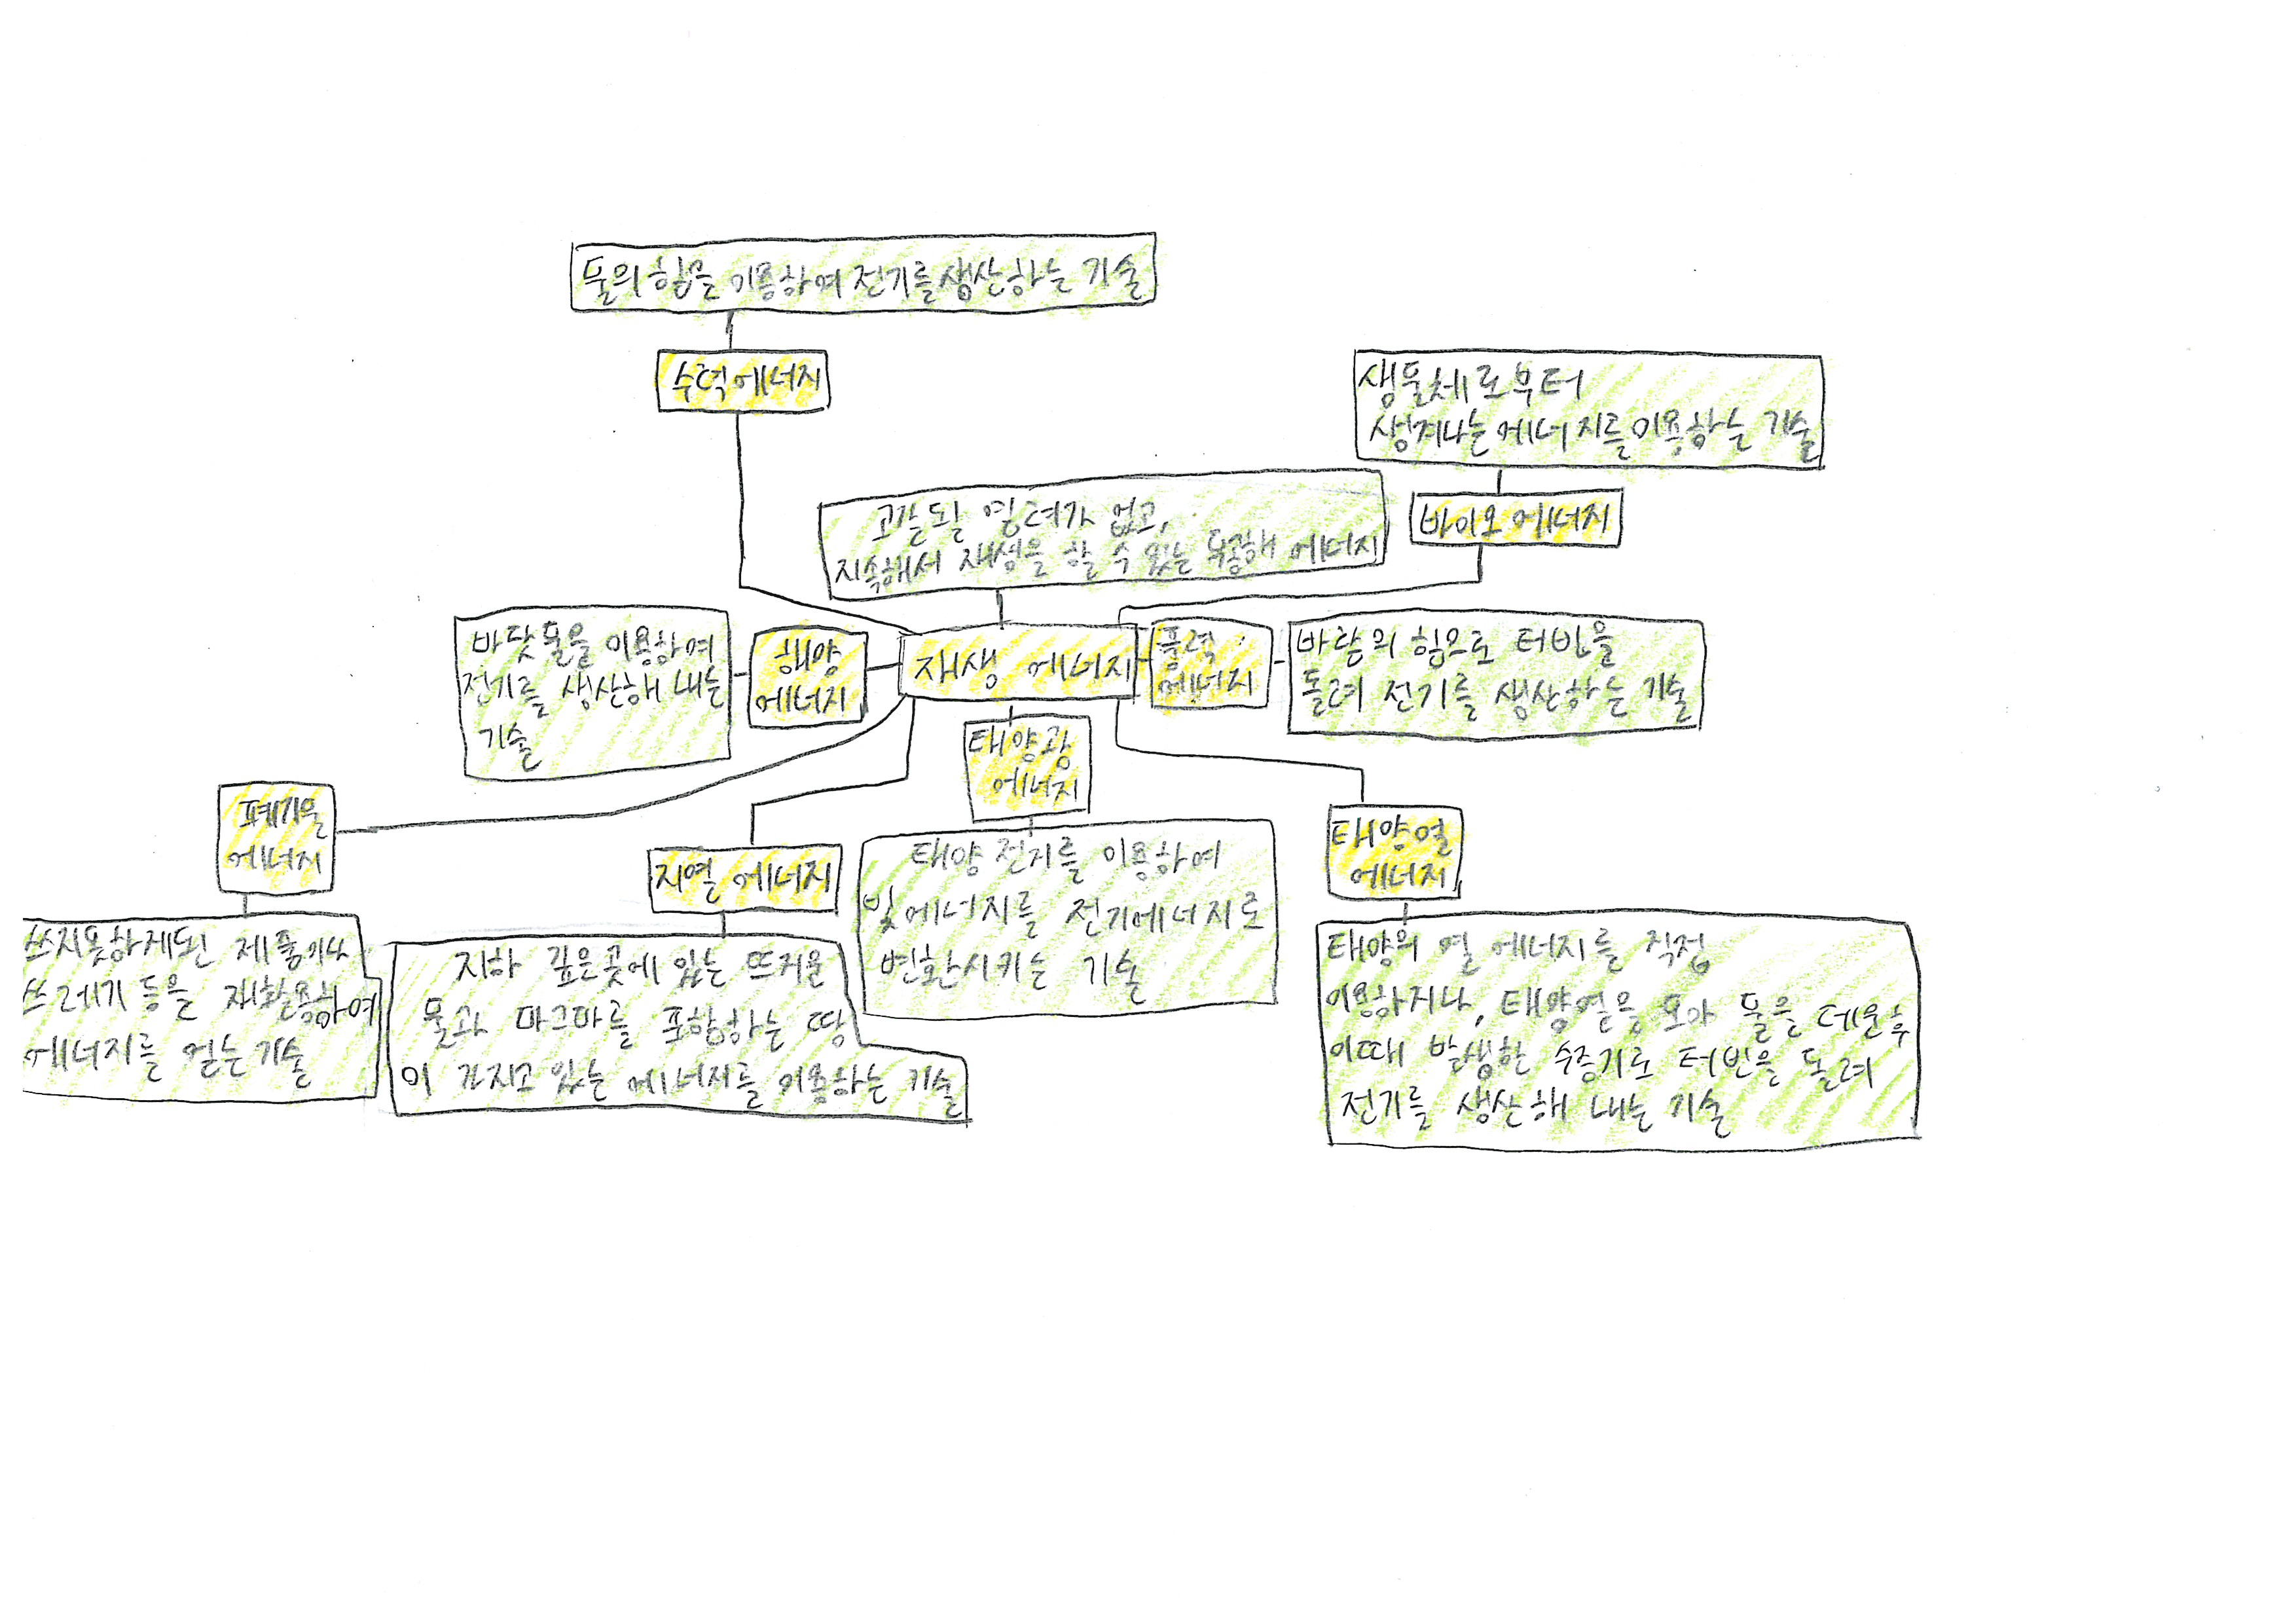 물의 힘을 이용하여 전기를 생산하는 기술
수력에너지
생물체로부터
생겨나는 에너지를 이용하는 기술
바이오 에너지
고갈될 염려가 없고,
지속해서 재생을 할 수 있는 무공해 에너지
바닷물을 이용하여
전기를 생산해 내는
기술
해양
에너지
재생 에너지
풍력
에너지
바람의 힘으로 터빈을
돌려 전기를 생산하는 기술
폐기물
에너지
쓰지못하게된 제품이나
쓰레기 등을 재활용하여
에너지를 얻는 기술
지열 에너지
지하 깊은곳에 있는 뜨거운
물과 마그마를 포함하는 땅
이 가지고 있는 에너지를 이용하는 기술
태양광
에너지
태양 전지를 이용하여
빛에너지를 전기에너지로
변환시키는 기술
태양열
에너지
태양의 열 에너지를 직접
이용하거나, 태양열을 모아 물을 데운후
이때 발생한 수증기로 터빈을 돌려
전기를 생산해 내는 기술